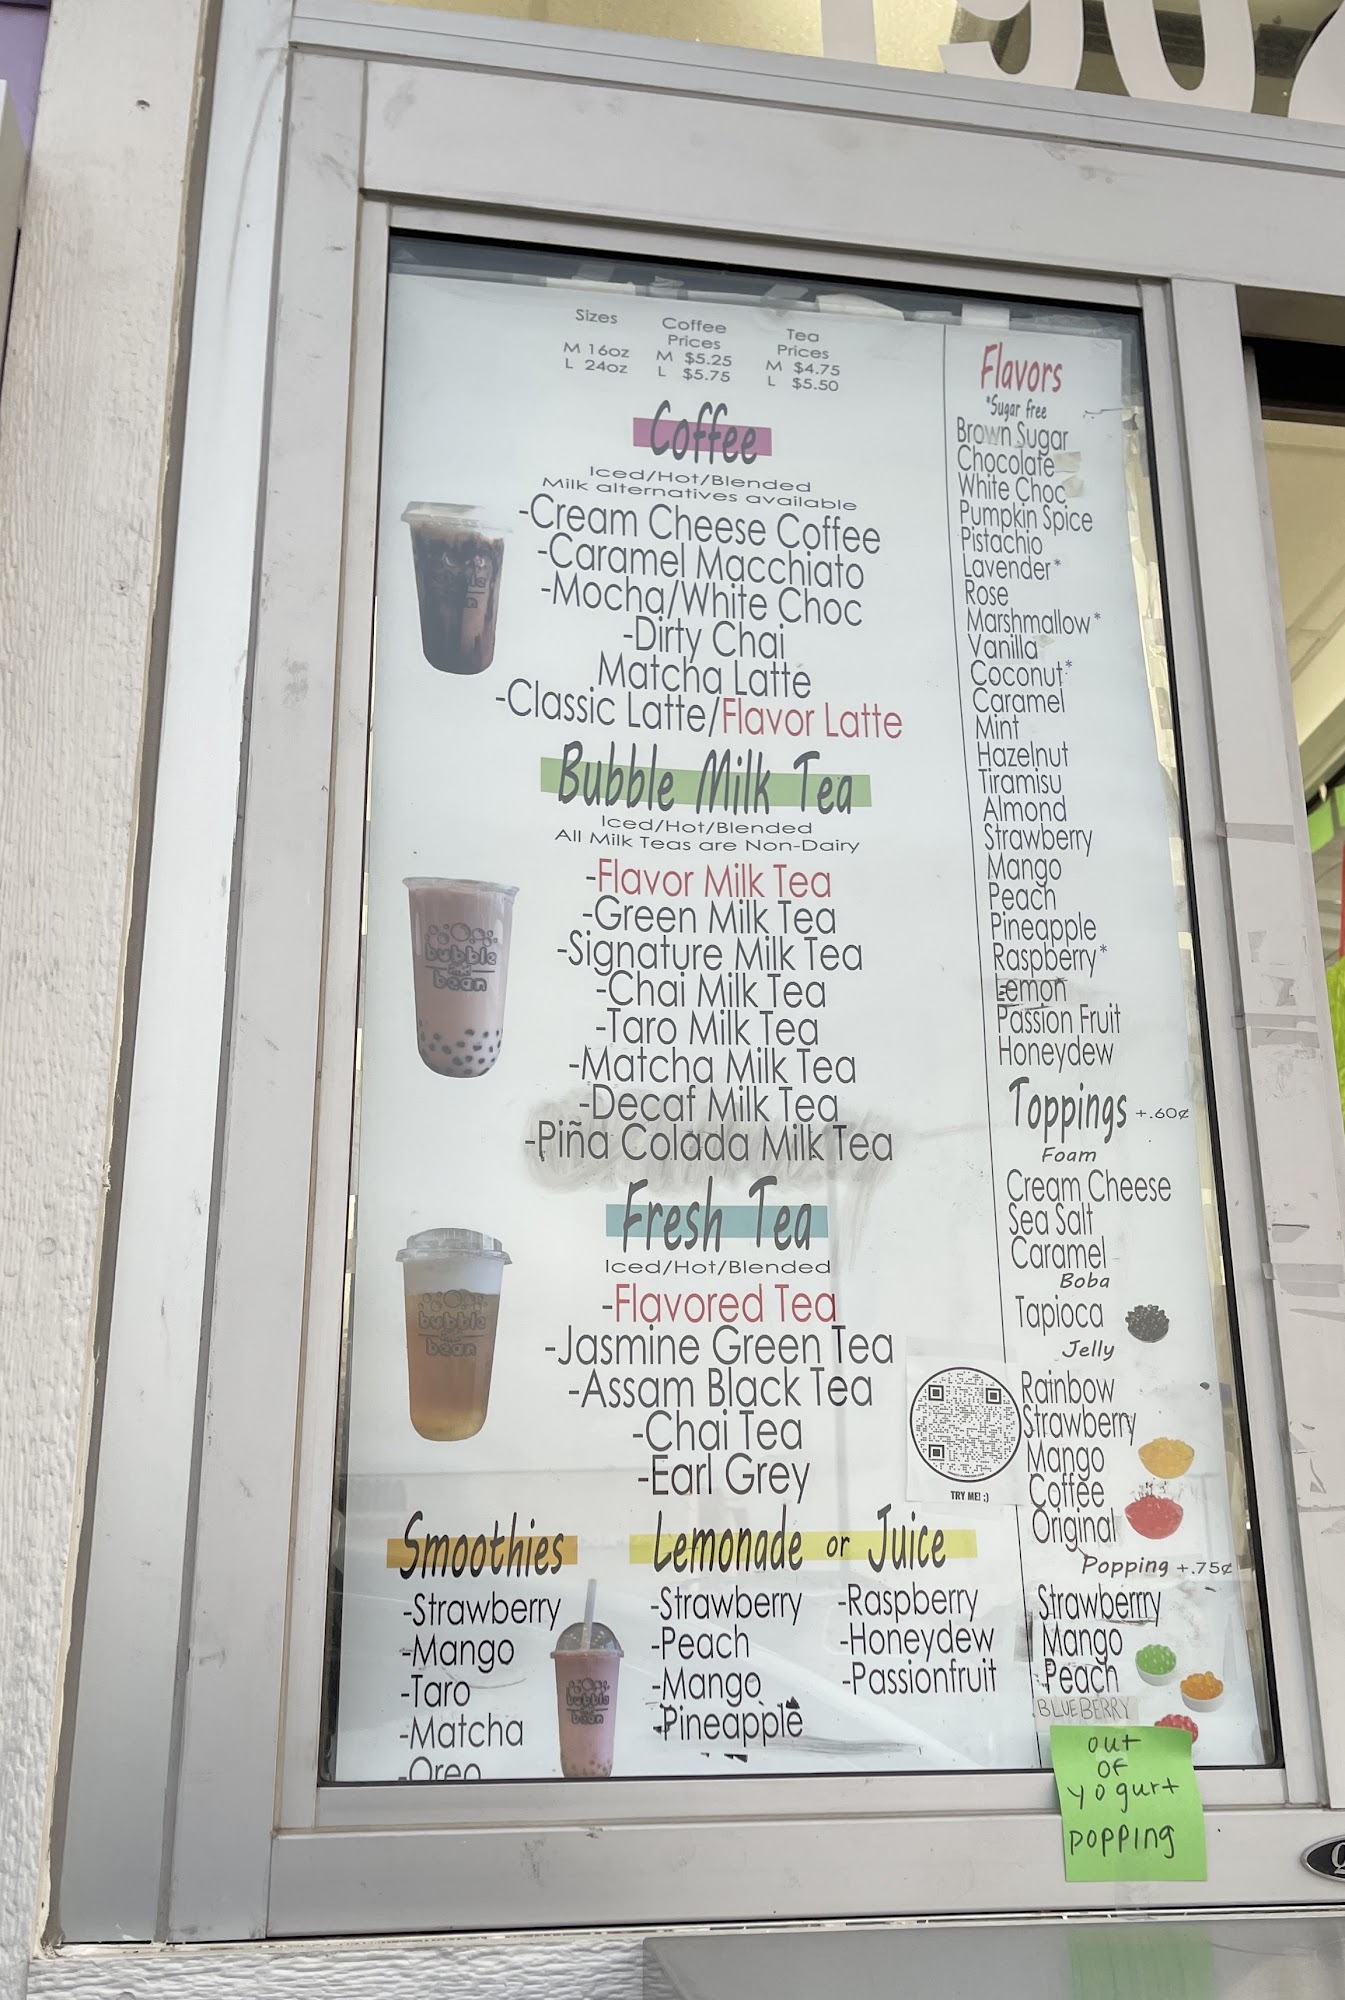 Sizes
M 16oz
L 24oz
Coffee
Prices
M $5.25
L $5.75
Tea
Prices
M $4.75
L $5.50
Coffee
Iced/Hot/Blended
Milk alternatives available
-Cream Cheese Coffee
-Caramel Macchiato
-Mocha/White Choc
-Dirty Chai
Matcha Latte
-Classic Latte/Flavor Latte
Bubble Milk Tea
Iced/Hot/Blended
All Milk Teas are Non-Dairy
-Flavor Milk Tea
-Green Milk Tea
-Signature Milk Tea
-Chai Milk Tea
-Taro Milk Tea
-Matcha Milk Tea
-Decaf Milk Tea
-Piña Colada Milk Tea
bubble
bean
Fresh Tea
Iced/Hot/Blended
-Flavored Tea
-Jasmine Green Tea
-Assam Black Tea
-Chai Tea
-Earl Grey
bubble
bean
TRY ME! ;)
Smoothies
-Strawberry
-Mango
-Taro
-Matcha
-Oreo
bubble
bean
Lemonade or Juice
-Strawberry
-Peach
-Mango
-Pineapple
-Raspberry
-Honeydew
-Passionfruit
Flavors
*Sugar free
Brown Sugar
Chocolate
White Choc
Pumpkin Spice
Pistachio
Lavender*
Rose
Marshmallow*
Vanilla
Coconut*
Caramel
Mint
Hazelnut
Tiramisu
Almond
Strawberry
Mango
Peach
Pineapple
Raspberry*
Lemon
Passion Fruit
Honeydew
Toppings +.60¢
Foam
Cream Cheese
Sea Salt
Caramel
Boba
Tapioca
Jelly
Rainbow
Strawberry
Mango
Coffee
Original
Popping +.75¢
Strawberrry
Mango
Peach
BLUEBERRY
out
OF
yogurt
popping